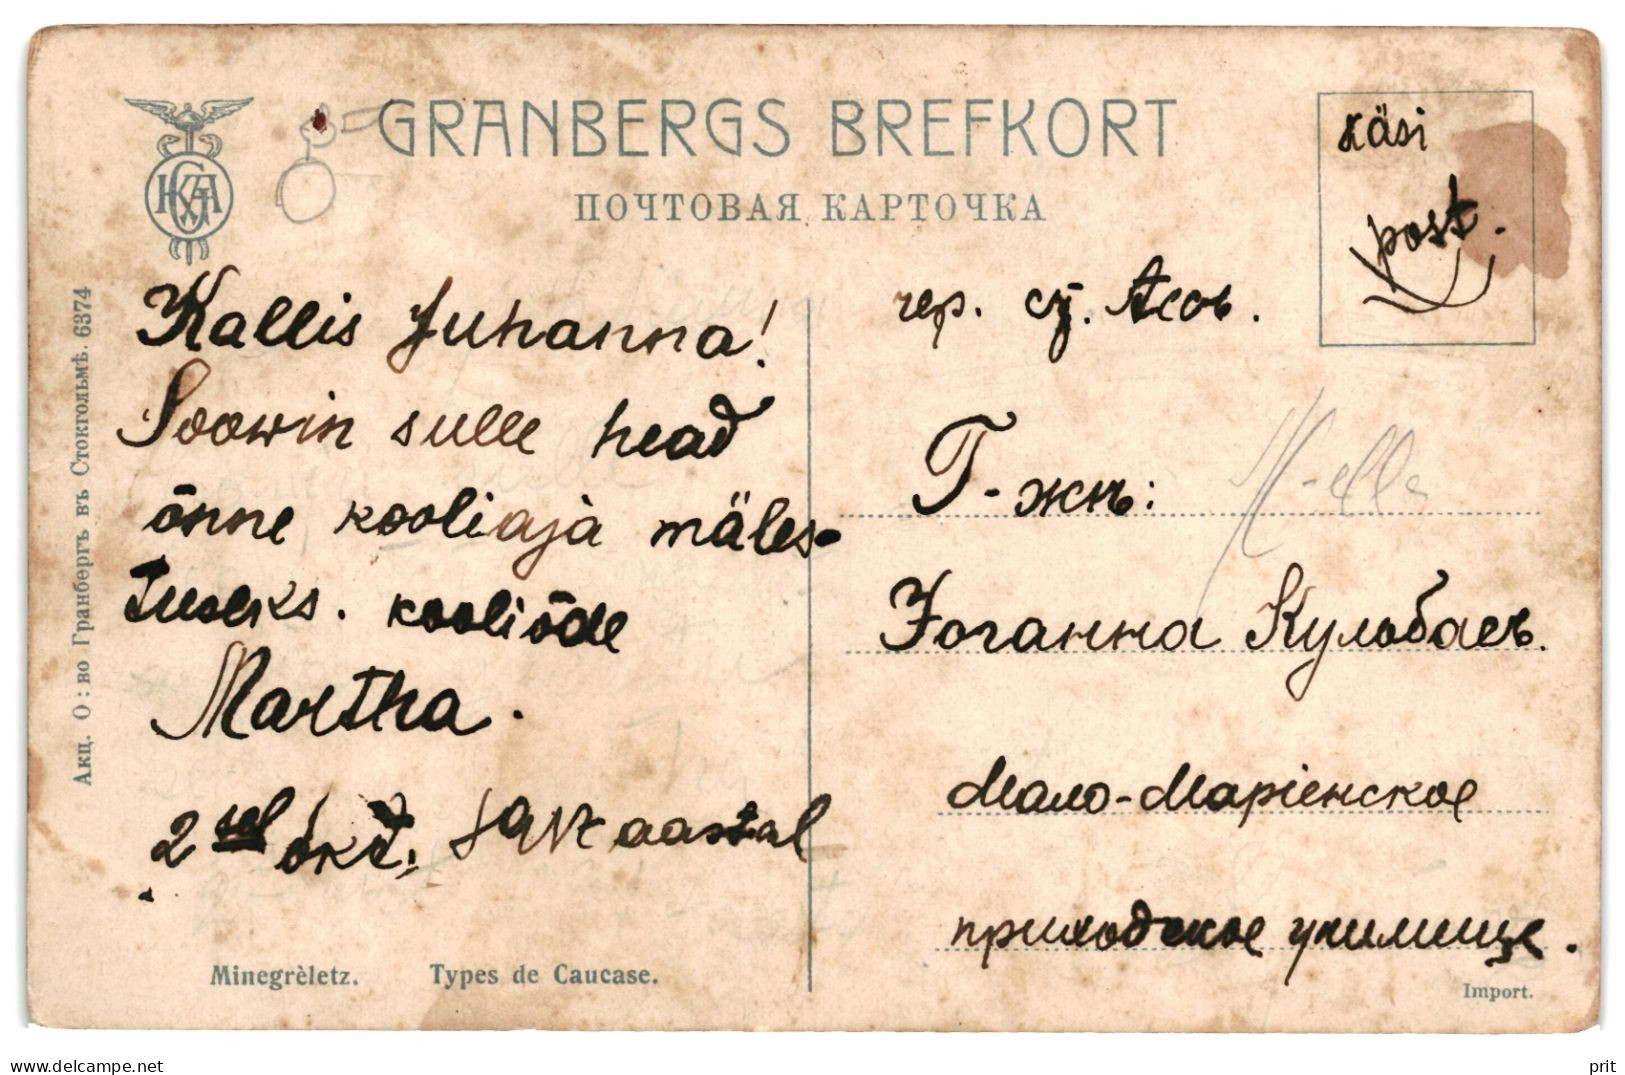 GRANBERGS BREFKORT
ПОЧТОВАЯ КАРТОЧКА
käsi
post.
Акц. О: во Гранбергъ въ Стокгольмѣ. 6374
Kallis Juhanna!
Soowin sulle head
õnne kooliaja mäles-
tuseks. kooliõde
Martha.
2 sel okt. aastal
чер. ст. Асоь.
Г-жѣ:
Іоганна Кульбаеь.
Мало-Маріенское
приходское училище.
Minegrèletz. Types de Caucase.
Import.
delcampe.net
prit